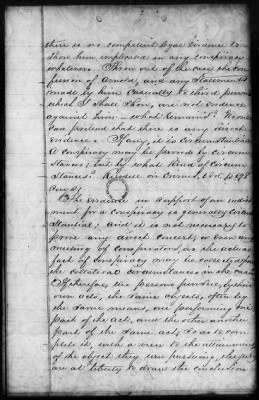 there is no competent legal evidence to
show him implicated in any conspiracy
whatever. Throw out of the case the con
fession of Arnold, and any statements
made by him casually to third persons
what I shall show, are not evidence
against him — what remains? No one
can pretend that there is any direct
evidence. If any, it is circumstantial
A conspiracy may be proved by circum
stances; but by what kind of circum
stances? on Crimes, Vol. p. 698
The evidence in support of an indict
ment for a conspiracy is generally circum
stantial; and it is not necessary to
prove any direct concert, or even any
meeting of conspirators, as the actual
fact of conspiracy may be collected from
the collateral circumstances in the case
If therefore the persons pursue, by their
own acts, the same objects, often by
the same means, one performing one
part of the act, and the other another
part of the same act, so as to com
plete it, with a view to the attainment
of the object they were pursuing, the jury
are at liberty to draw the conclusion